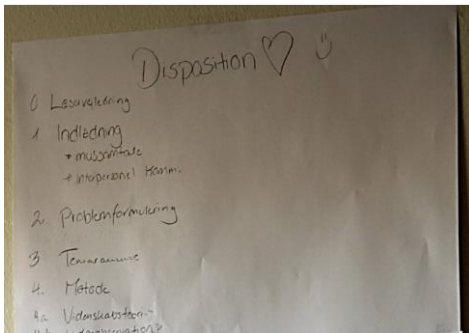 Disposition ♡ :)
0 Læsevejledning
1 Indledning
+ mussamtale
+ interpersonel komm.
2. Problemformulering
3 Temaramme
4. Metode
4a Videnskabsteori